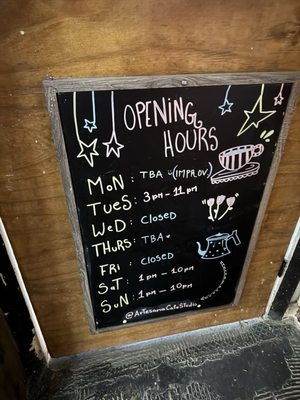 OPENING
HOURS
MON : TBA (IMPROV)
TUES : 3PM - 11PM
WED : CLOSED
THURS : TBA
FRI : CLOSED
SAT : 1PM - 10PM
SUN : 1PM - 10PM